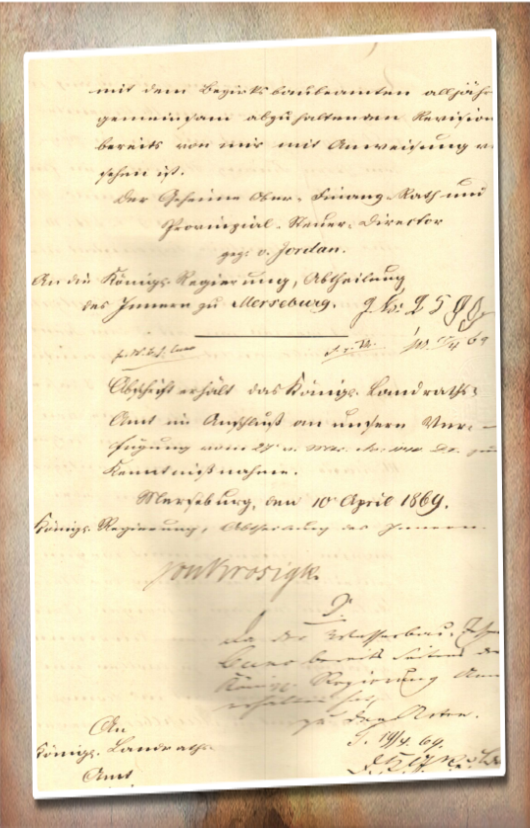 mit dem Bezirksbaubeamten alljähr
gemeinsam abzuhaltenden Revision
bereits von mir mit Anweisung v
sehen ist.
Der Geheime Ober-Finanz-Rath und
Provinzial-Steuer-Director
gez. v. Jordan.
An die Königl. Regierung, Abtheilung
des Innern zu Merseburg.
Abschrift erhält das Königl. Landraths-
Amt im Anschluß an unsere Ver-
fügung vom 27 v. Mts. zur
Kenntnißnahme.
Merseburg, den 10 April 1869.
Königl. Regierung, Abtheilung des Innern.
von Krosigk
Da der Wasserbau-
bereits Seitens de
Königl. Regierung
erhalten hat,
zu den Acten.
14/4. 69.
An
Königl. Landraths-
Amt